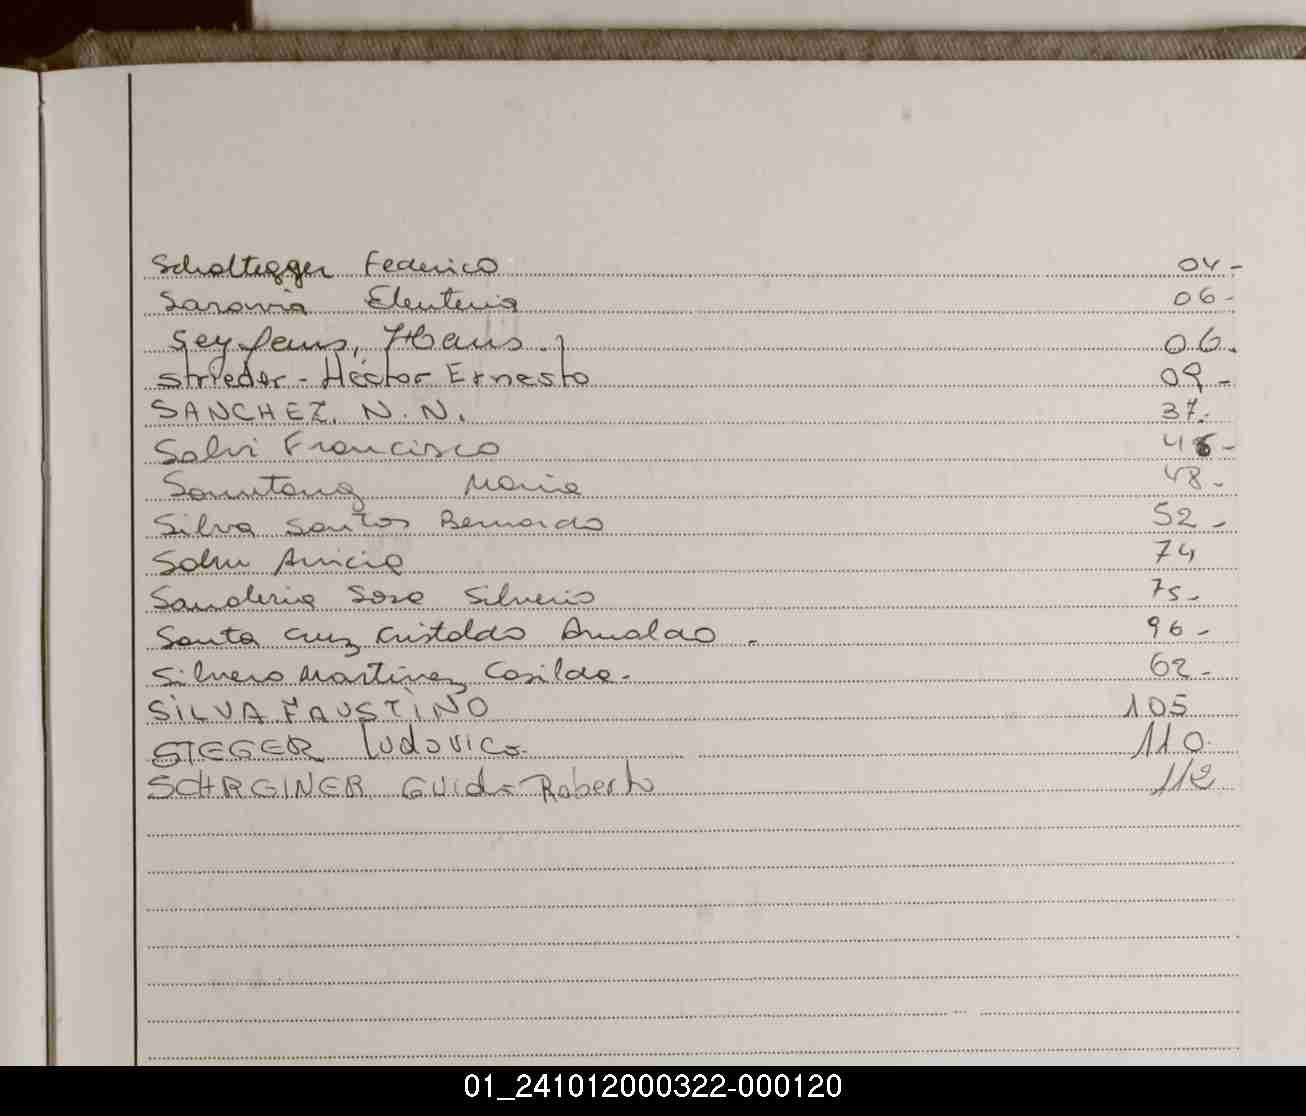 Scholtegger Federico 04-
Saravia Eleuteria 06-
Seyfaus, Hans. 06.
Strieder - Héctor Ernesto 09-
SANCHEZ, N. N. 37.
Salvi Francisco 46-
Sonntang Maria 48-
Silva Santos Bernardo 52-
Anicia 74
Sanabria Sosa Silverio 75-
Santa Cruz Cristaldo Arnaldo. 96-
Silvero Martinez Casilda. 62-
SILVA FAUSTINO 105
STEGER Ludovico. 110.
SCHREINER GUido Roberto 112
01_241012000322-000120